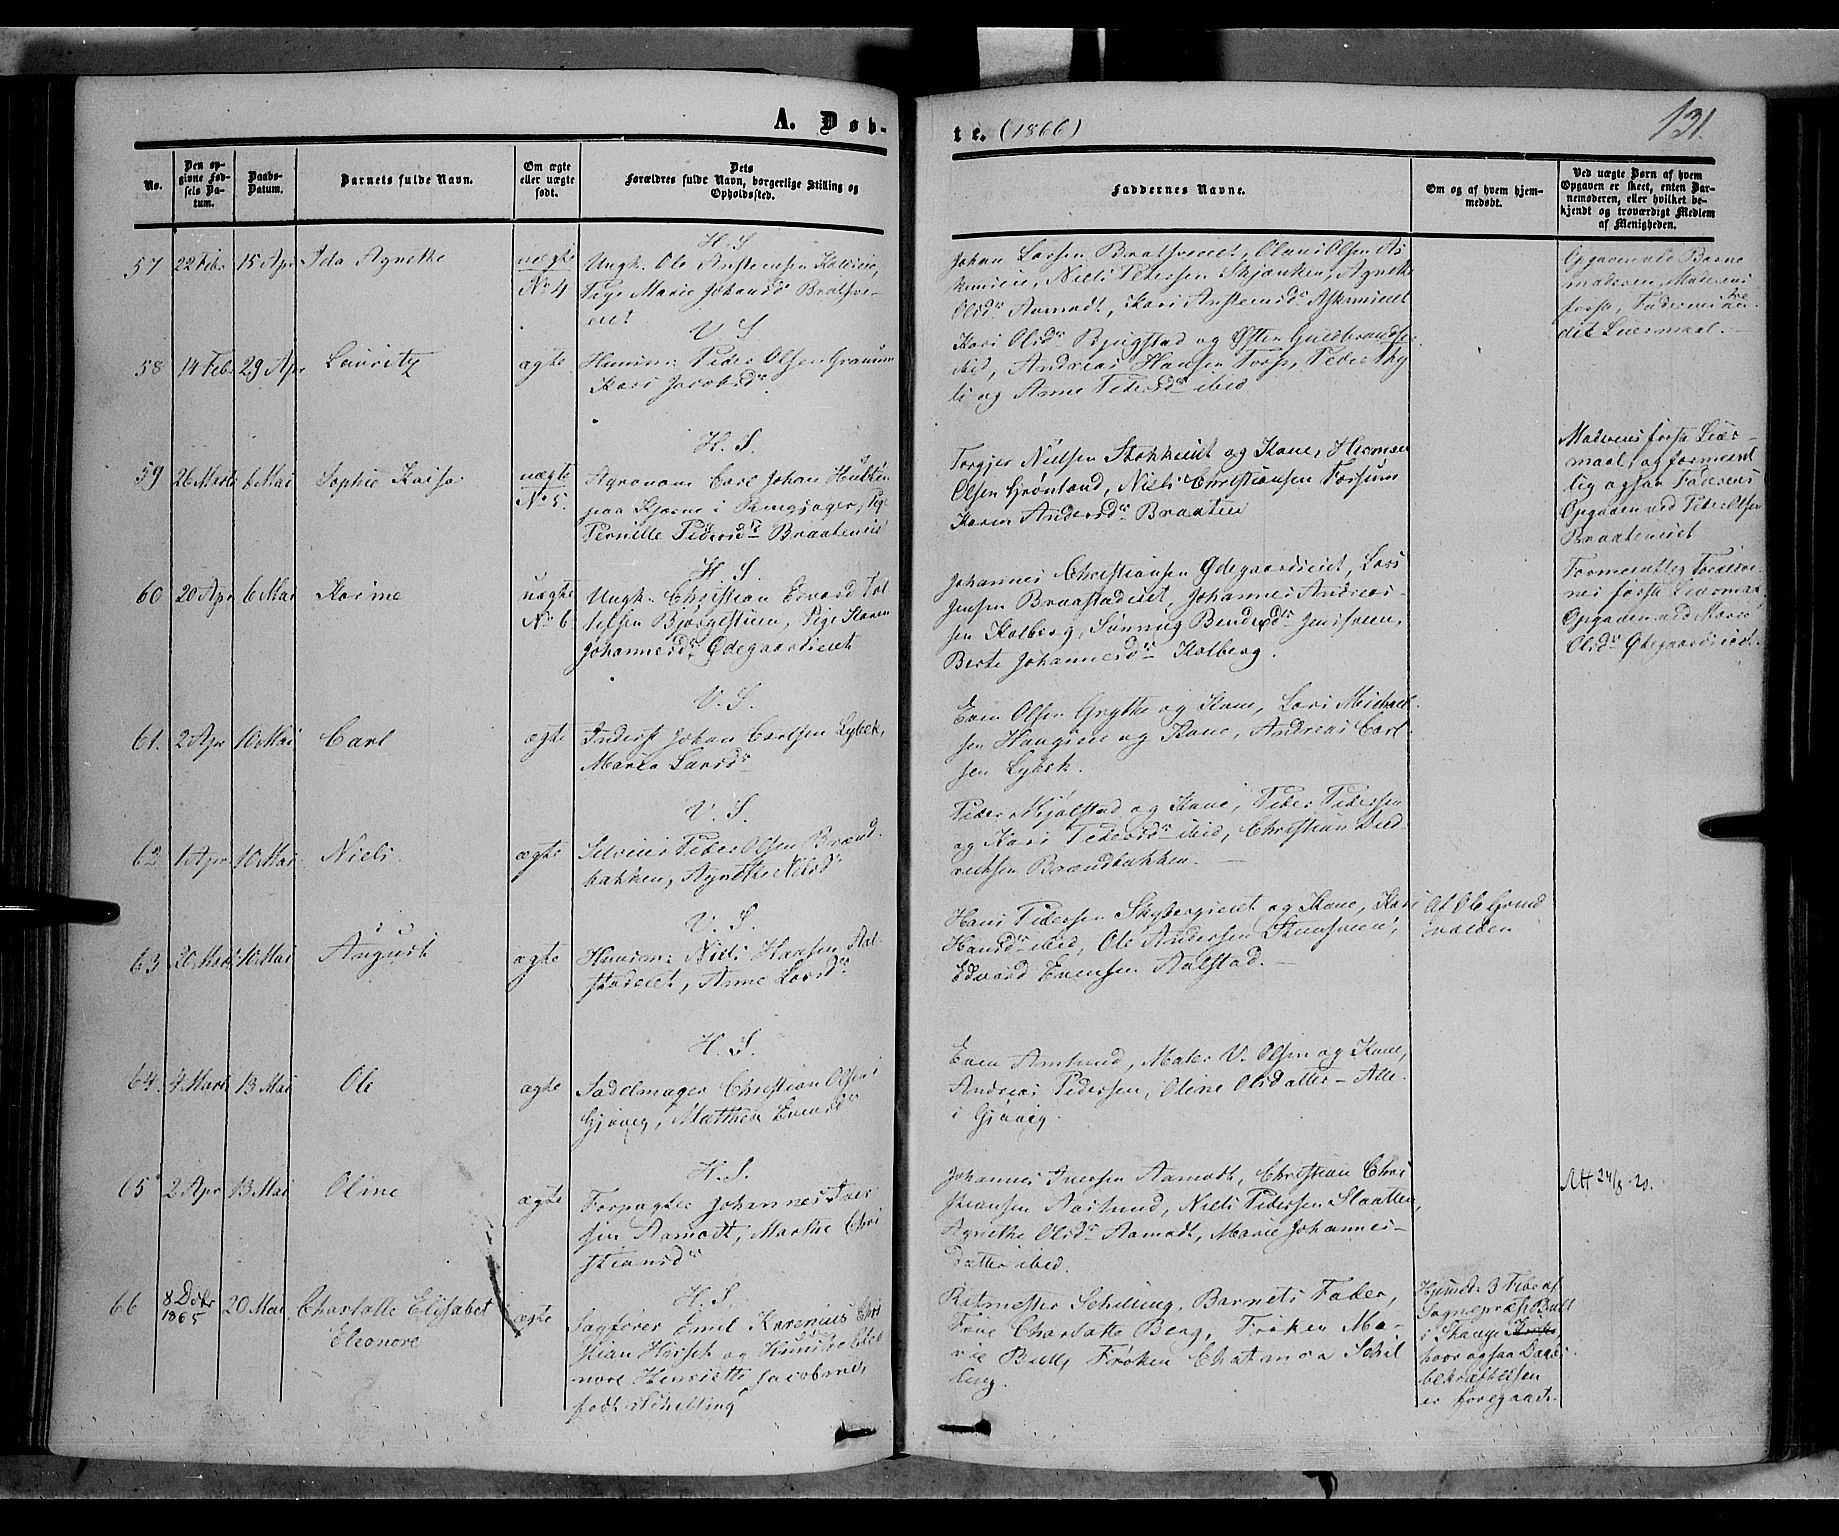 A. Døb-
te. (1866)
131.
No.
Den op-
givne Fød-
sels Da-
tum.
Daabs-
Datum.
Barnets fulde Navn.
Om ægte
eller uægte
født.
Dets
Forældres fulde Navn, borgerlige Stilling og
Opholdssted.
Faddernes Navne.
Om og af hvem hjem-
medøbt.
Ved uægte Børn af hvem
Opgaven er skeet, enten Bar-
nemoderen, eller hvilket be-
kjendt og troværdigt Medlem
af Menigheden.
57 22 Febr 15 Apr Ida Agnethe uægte
No 4
H. S
Ungk. Ole Anstensen
Pige Marie Johansdr Bratsve-
eiet
Johan Larsen Bratsveeiet, Olaus Olsen As
Niels Pedersen Skjanken, Agnethe
Olsdr Aamodt, Kari Anstensdr
Opgaven ved Barne
moderen, Moderens
første, Faderens
Leiermaal.
58 14 Febr 29 Apr Lauritz ægte
V. S
Huusm: Peder Olsen Granum
Kari Jacobsdr.
Kari Olsdr Bjugstad og Østen Guldbrandsen
ibid, Andreas Hansen Torp, Peder Thy
li og Anne Pedersdr ibid
59 26 Marts 6 Mai Sophie Kaisa uægte
No 5.
H. S.
Agronom Carl Johan Hultén
paa Kjærne i Ringsager, Pg.
Pernille Pedersdr Braateneiet
Torgjer Nielsen Stokkeeiet og Kone, Herman
Olsen Grønland, Niels Christiansen Forsum
Karen Andersdr Braaten
Moderens første Leier-
maal, og forment
lig ogsaa Faderens
Opgaven ved Peder Olsen
Braateneiet
60 20 Apr 6 Mai Karine uægte
No 6
H. S.
Ungk. Christian Edvard Tol
lefsen Bjørgestuen, Pige Karen
Johannesdr Ødegaardseiet
Johannes Christiansen Ødegaardseiet, Lars
Jensen Braastadeiet, Johannes Andreas-
sen Kolberg, Sønnug Bendixdr Jensveen,
Berte Johannesdr Kolberg.
Formentlig Forældre
nes første Leiermaal.
Opgaven ved Marie
Olsdr Ødegaardseiet.
61. 2 Apr 10 Mai Carl ægte
V. S.
Inderst Johan Carlsen Lybek,
Maria Larsdr
Even Olsen Grythe og Kone, Lars Michael
sen Haugseie og Kone, Andreas Carl
sen Lybek.
62 1 Apr 10 Mai Niels. ægte
V. S.
Selveier Peder Olsen Brænd-
bakken, Agnethe Nilsdr
Peder Mjølstad og Kone, Peder Pedersen
og Kari Pedersdr ibid, Christian Died
richsen Brændbakken.
63 20 Marts 10 Mai August ægte
V. S.
Huusm: Niels Hansen Aal-
stadeiet, Anne Larsdr
Hans Pedersen Skybergeiet og Kone, Kari
Hansdr ibid, Ole Andersen Stensveen,
Edvard Evensen Aalstad.
Af Ole Grind
volden
64. 4 Marts 13 Mai Ole ægte
H. S.
Sadelmager Christian Olsen i
Gjøvig, Mathea Evensdr
Even Amlund, Maler V. Olsen og Kone,
Andreas Pedersen, Oline Olsdatter - Alle
i Gjøvig.
65 2 Apr 13 Mai Oline ægte
H. S.
Forpagter Johannes Iver
sen Aamodt, Marthe Chri
stiansdr
Johannes Iversen Aamodt, Christian Chri
stiansen Aaslund, Niels Pedersen Slaatten,
Agnethe Olsdr Aamodt, Marie Johannes-
datter ibid.
AH 24/8-20.
66 8 Dcbr
1865 20 Mai Charlotte Elisabet
Eleonore ægte
H. S
Sagfører Emil Kerenius Chri
stian Horset og Hustru Eleo
nore Henriette Jacobine,
født Schilling
Ritmester Schilling, Barnets Fader,
Frue Charlotte Berg, Frøken Ma-
rie Bull, Frøken Schil
ling.
Hjemd. 3 Febr af
Sognepræst Bull
i Stange
hvor ogsaa Daabs-
bekræftelsen
er foregaaet.